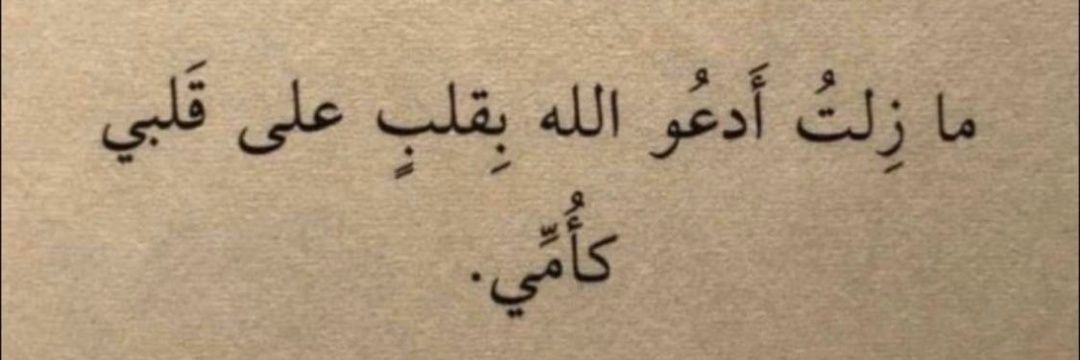 ما زِلتُ أَدعُو الله بِقلبٍ على قَلبي
كأُمِّي.